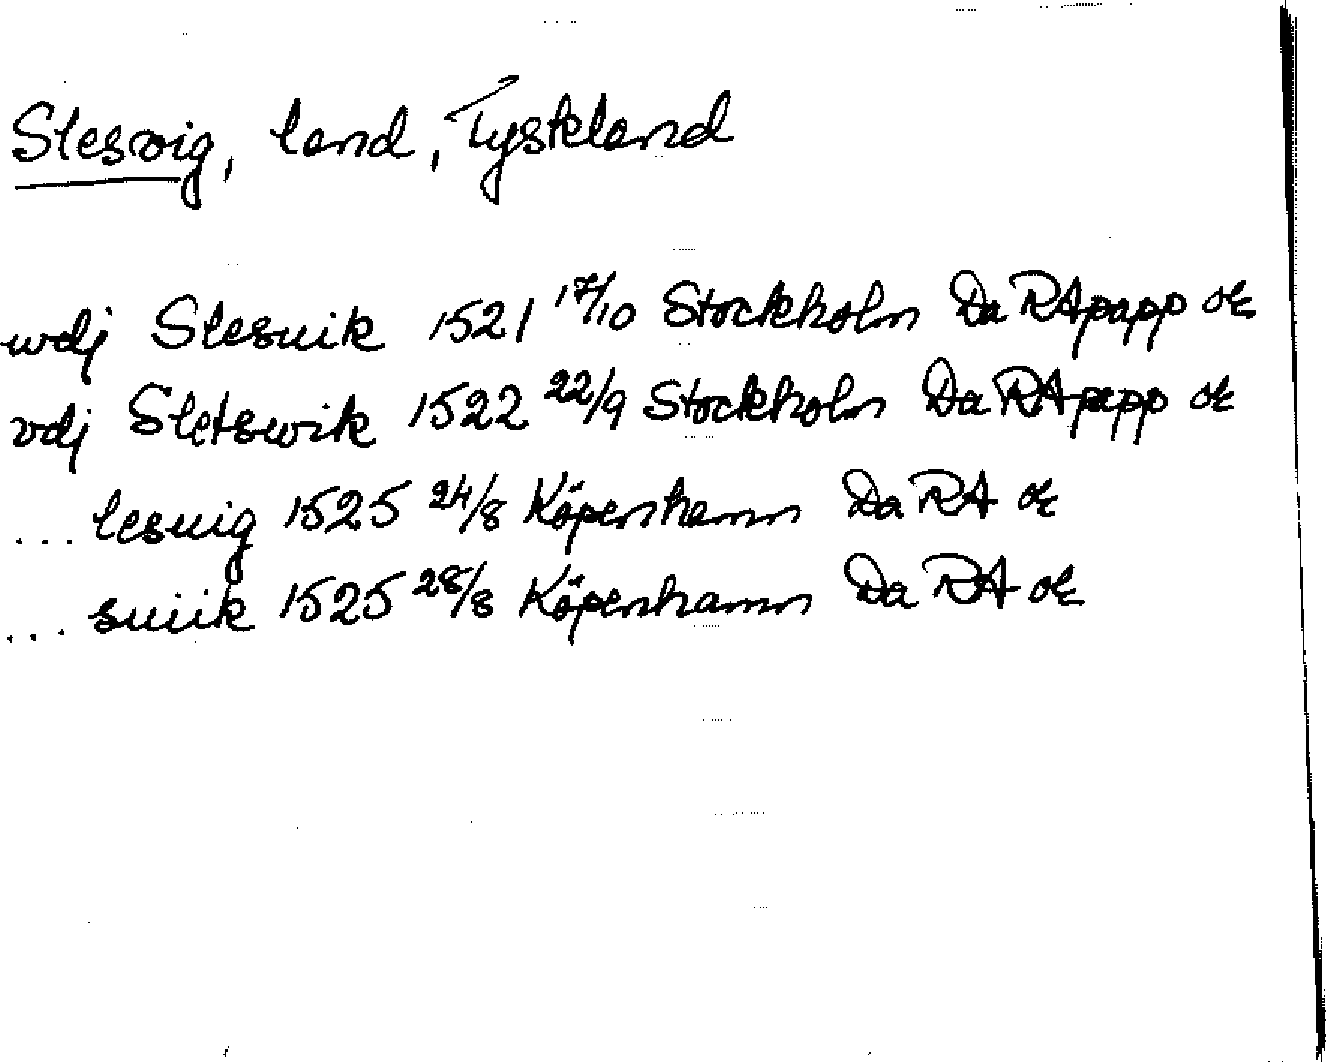 Slesvig, land, Tyskland
wdj Slesuik 1521 17/10 Stockholm Da RA papp or
vdj Sletswik 1522 22/9 Stockholm Da RA papp or
... lesuig 1525 24/8 Köpenhamn Da RA or
... suiik 1525 28/8 Köpenhamn Da RA or